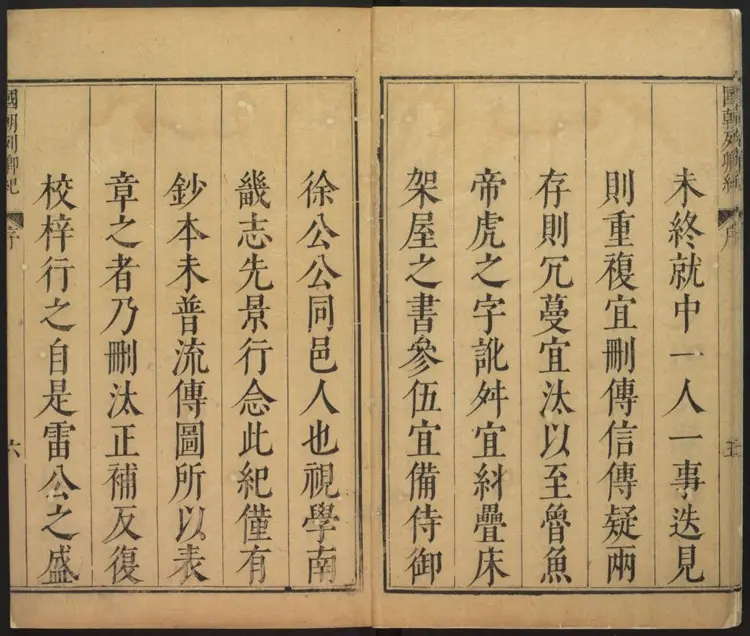 國朝列卿紀 序 五
未終就中一人一事迭見
則重複宜刪傳信傳疑兩
存則冗蔓宜汰以至魯魚
帝虎之字訛舛宜糾疊床
架屋之書參伍宜備侍御
徐公公同邑人也視學南
畿志先景行念此紀僅有
鈔本未普流傳圖所以表
章之者乃刪汰正補反復
校梓行之自是雷公之盛
國朝列卿紀 序 六